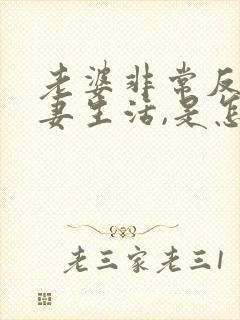 老婆非常反
妻生活,是怎
老三家老三1